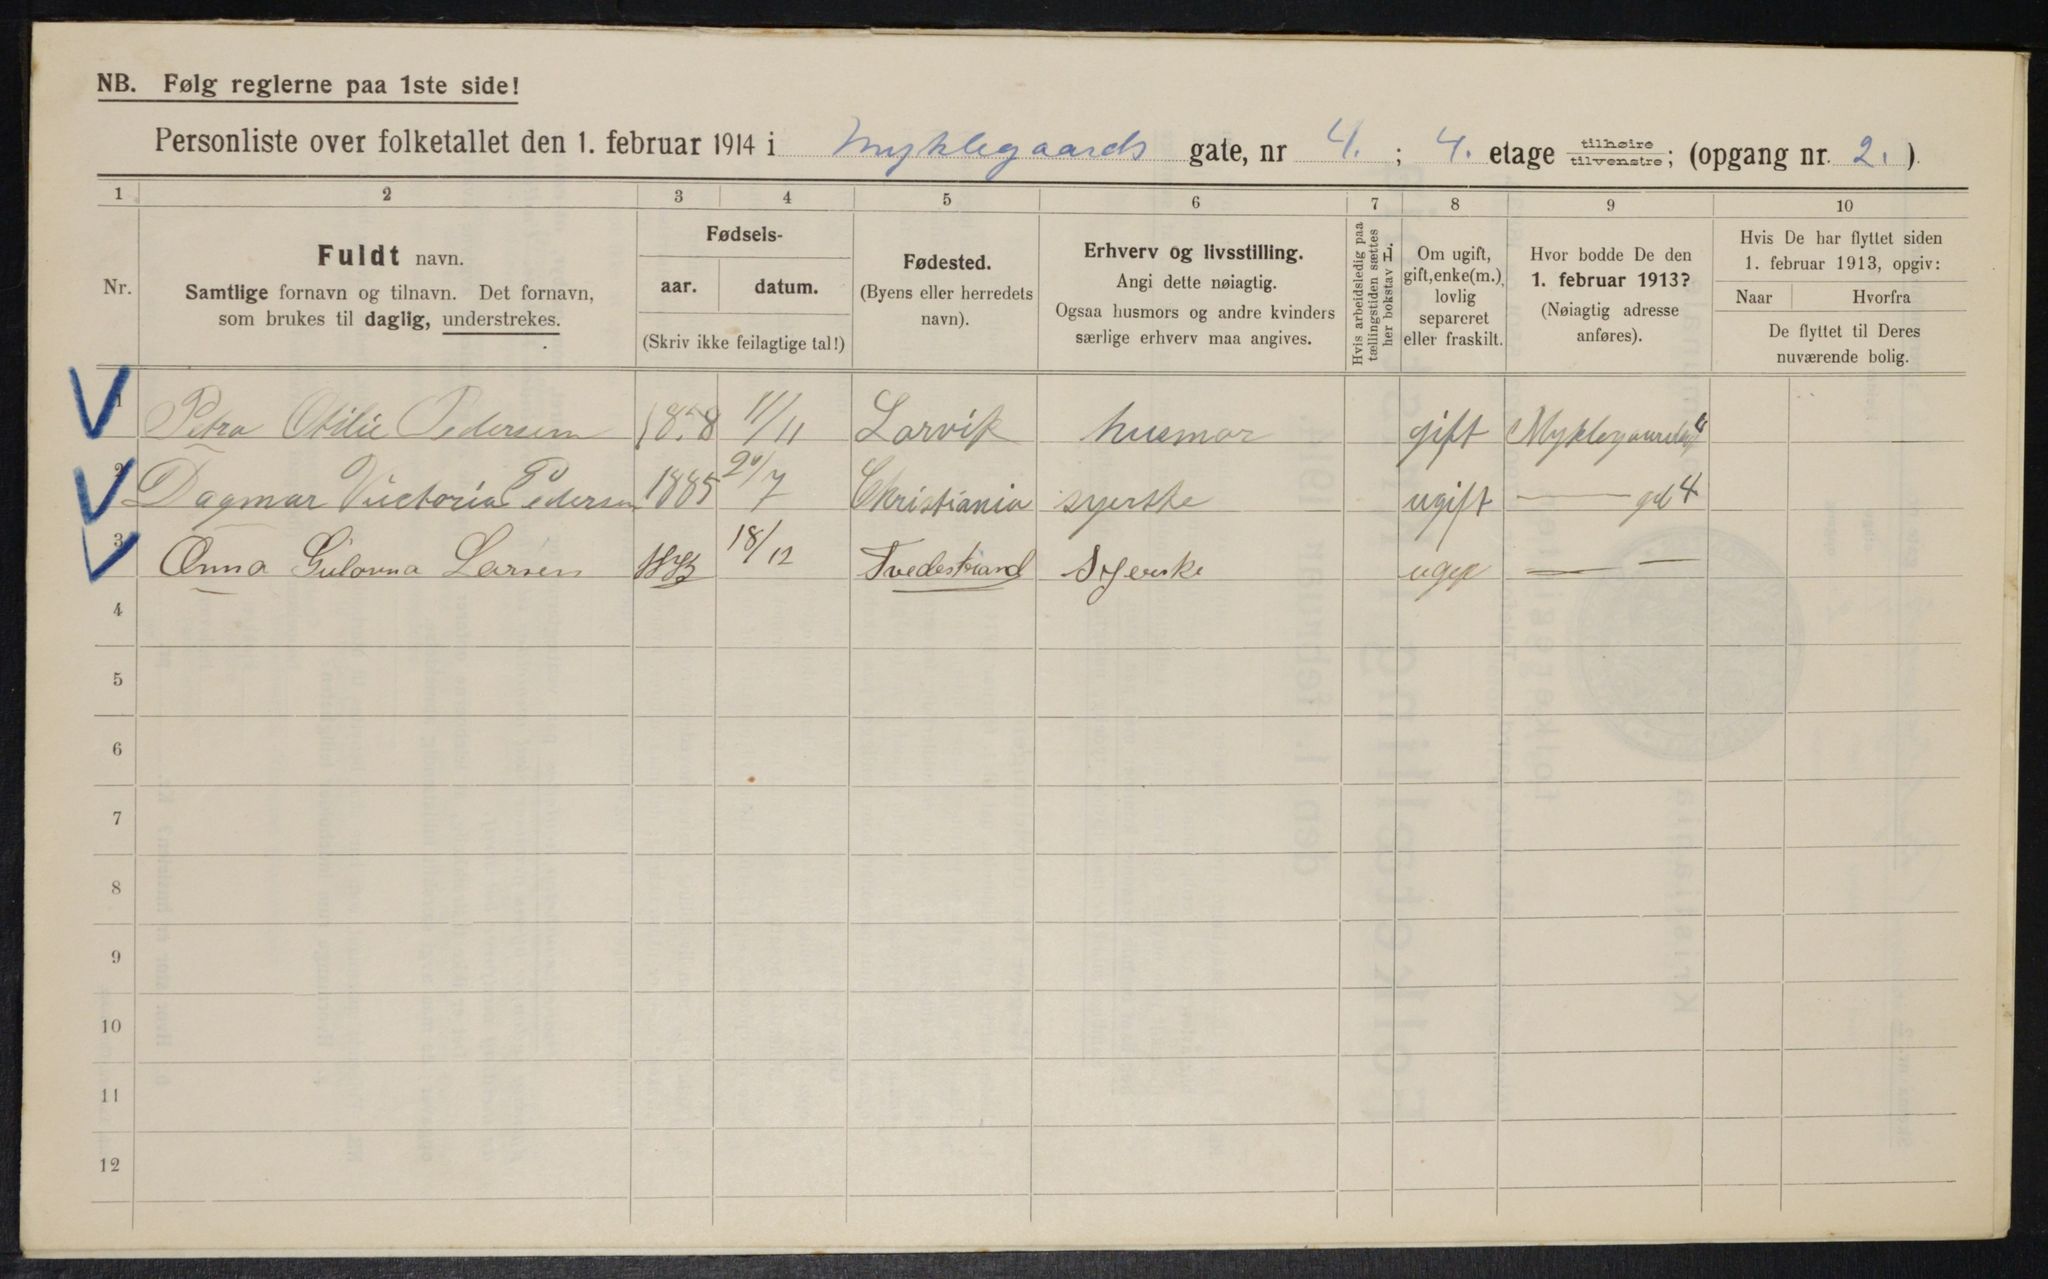 NB. Følg reglerne paa 1ste side!
Personliste over folketallet den 1. februar 1914 i Myklegaards gate, nr 4. ; 4. etage tilhøire tilvenstre; (opgang nr. 2. ).
1 2 3 4 5 6 7 8 9 10
Nr.
Fuldt navn.
Samtlige fornavn og tilnavn. Det fornavn,
som brukes til daglig, understrekes.
Fødsels-
aar. datum.
(Skriv ikke feilagtige tal!)
Fødested.
(Byens eller herredets
navn).
Erhverv og livsstilling.
Angi dette nøiagtig.
Ogsaa husmors og andre kvinders
særlige erhverv maa angives.
Hvis arbeidsledig paa
tællingstiden sættes
her bokstav L.
Om ugift,
gift, enke(m.),
lovlig
separeret
eller fraskilt.
Hvor bodde De den
1. februar 1913?
(Nøiagtig adresse
anføres).
Hvis De har flyttet siden
1. februar 1913, opgiv:
Naar Hvorfra
De flyttet til Deres
nuværende bolig.
1 Petra Otilie Pedersen 1858 11/11 Larvik husmor gift Myklegaardsg 4
2 Dagmar Victoria Pedersen 1885 20/7 Christiania syerske ugift — gd 4
3 Anna Larsen 18/12 Tvedestrand Syerske — —
4
5
6
7
8
9
10
11
12